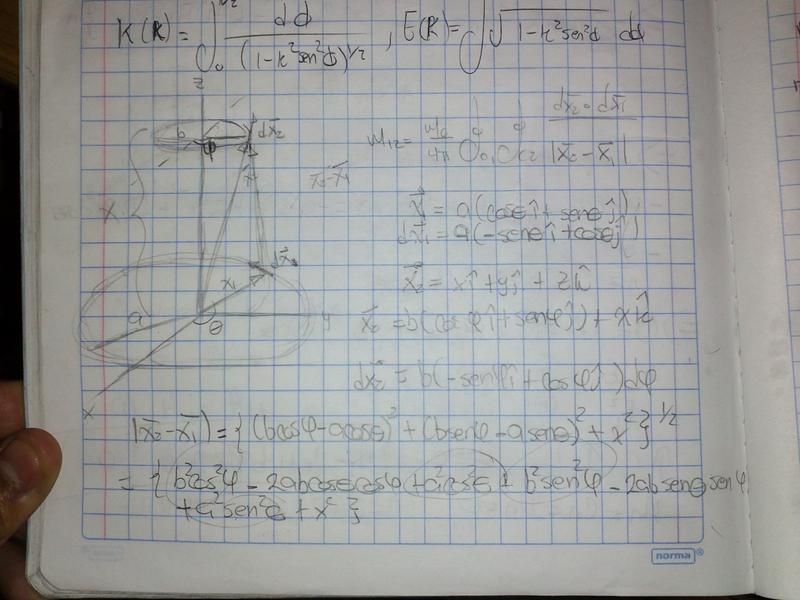 K(k)= ∫₀^{π/2} dϕ / (1-k²sen²ϕ)^{1/2} , E(k)= ∫ √(1-k²sen²ϕ) dϕ
z
b
φ
dx̄₂
M₁₂ = μ₀/4π ∮c₁ ∮c₂ dx̄₂·dx̄₁ / |x̄₂-x̄₁|
x̄₂-x̄₁
X
x⃗₁ = a(cosθî+senθĵ)
dx⃗₁ = a(-senθî+cosθĵ)
dx⃗₁
x₁
x⃗₂ = xî+yĵ+zk̂
a
θ
y
x⃗₂ = b(cosφî+senφĵ)+xk̂
x
dx⃗₂ = b(-senφî+cosφĵ)dφ
|x̄₂-x̄₁|={(bcosφ-acosθ)²+(bsenφ-asenθ)²+x²}^{1/2}
={b²cos²φ-2abcosθcosφ+a²cos²θ+b²sen²φ-2absenθsenφ
+a²sen²θ+x²}
norma®